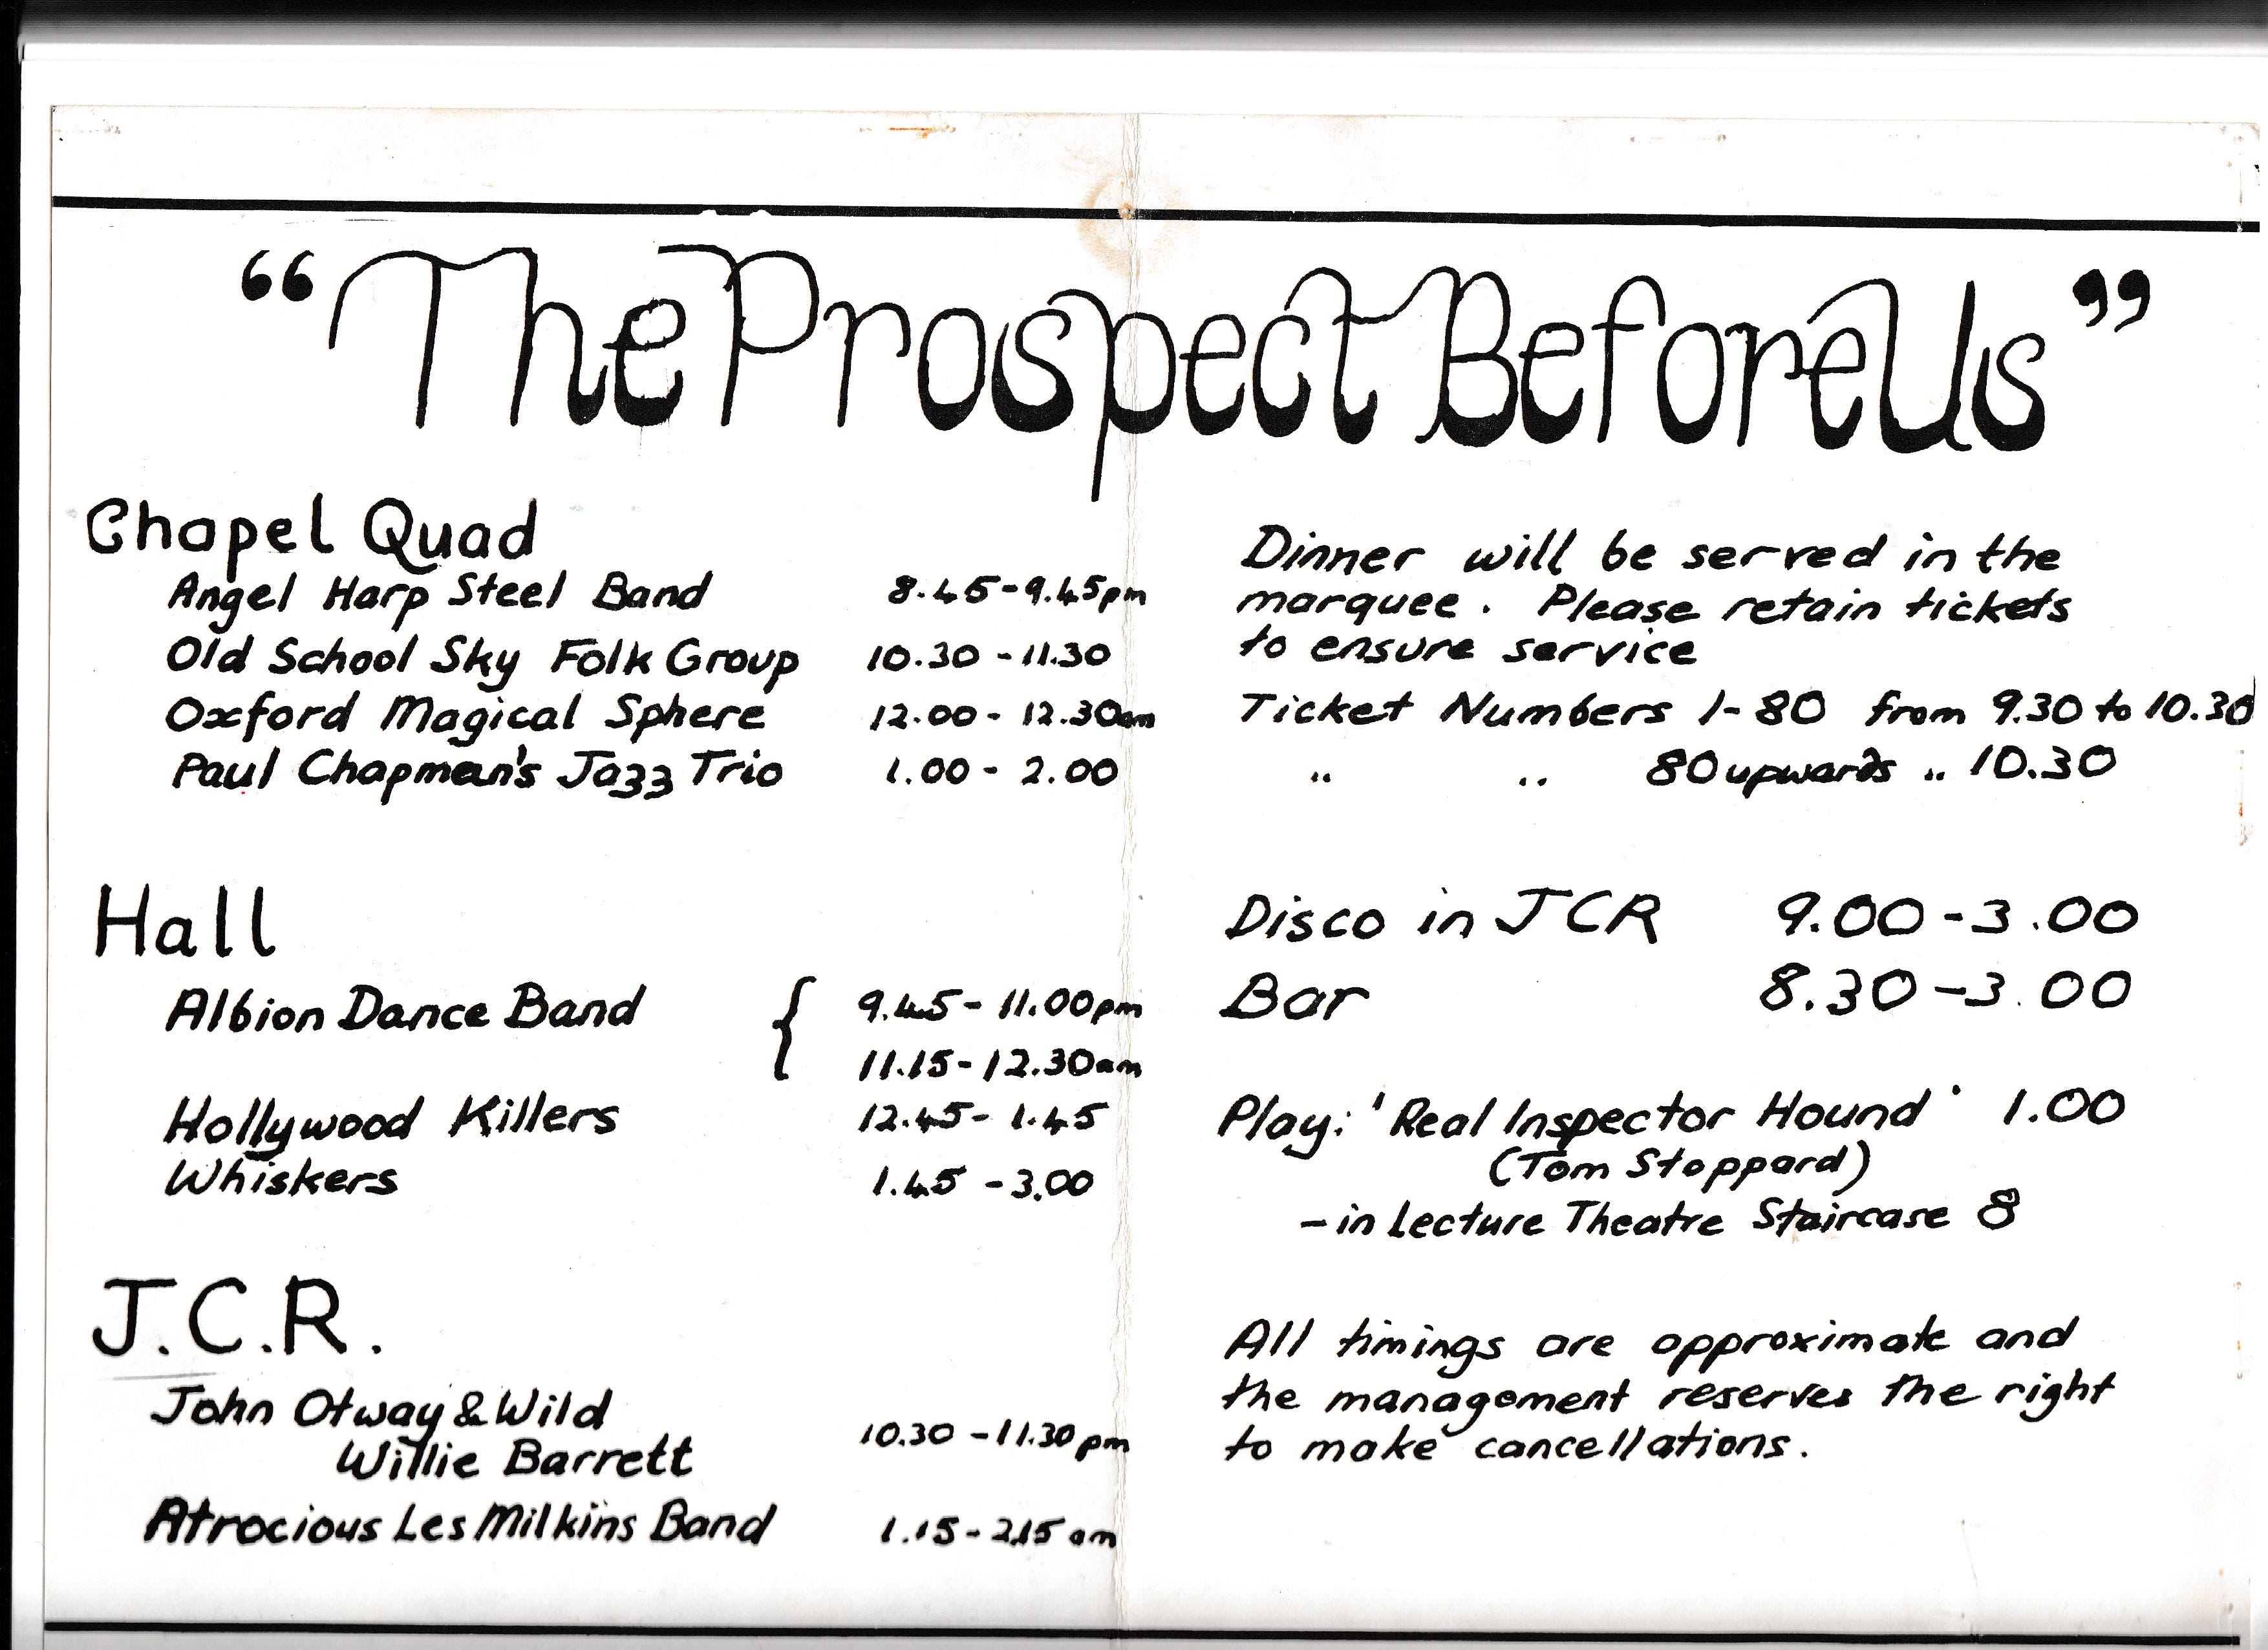 “The Prospect Before Us”
Chapel Quad
Angel Harp Steel Band 8.45-9.45pm
Old School Sky Folk Group 10.30-11.30
Oxford Magical Sphere 12.00-12.30am
Paul Chapman's Jazz Trio 1.00-2.00
Hall
Albion Dance Band { 9.45-11.00pm
11.15-12.30am
Hollywood Killers 12.45-1.45
Whiskers 1.45-3.00
J.C.R.
John Otway & Wild
Willie Barrett 10.30-11.30pm
Atrocious Les Milkins Band 1.15-2.15am
Dinner will be served in the
marquee. Please retain tickets
to ensure service
Ticket Numbers 1-80 from 9.30 to 10.30
" " 80 upwards " 10.30
Disco in JCR 9.00-3.00
Bar 8.30-3.00
Play: 'Real Inspector Hound' 1.00
(Tom Stoppard)
- in Lecture Theatre Staircase 8
All timings are approximate and
the management reserves the right
to make cancellations.